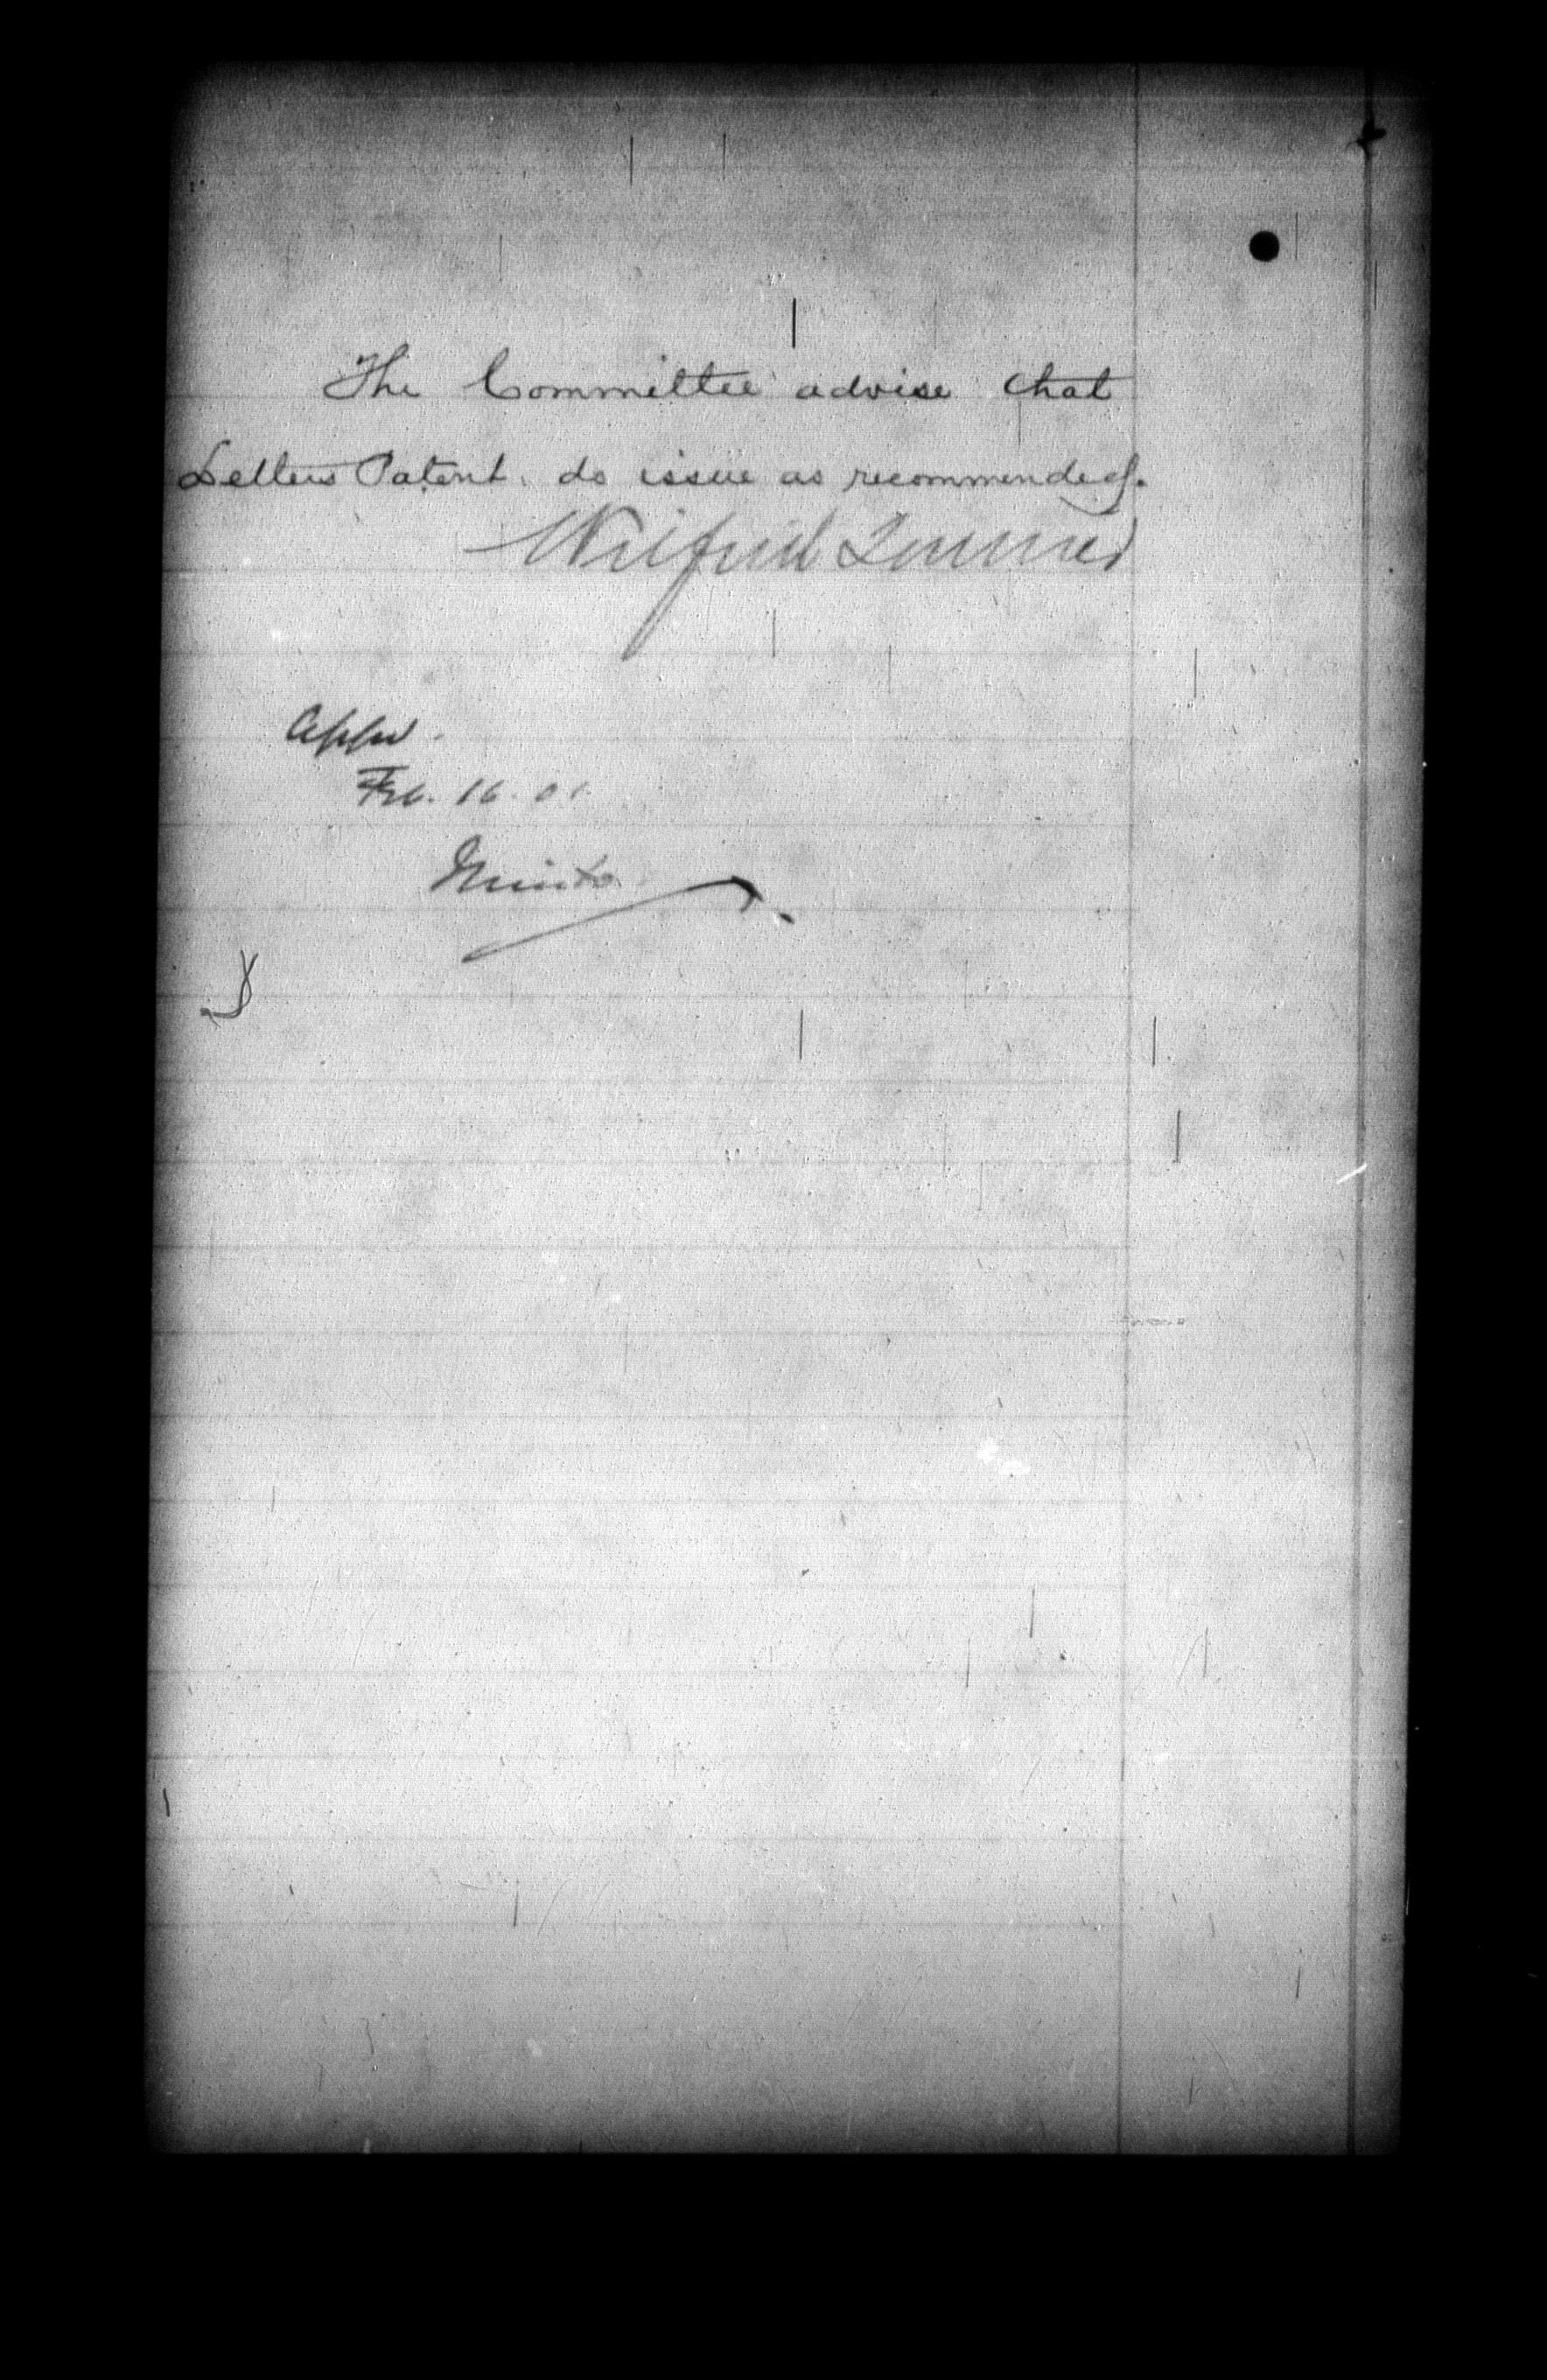 The Committee advise that
Letters Patent. do issue as recommended.
Wilfrid Laurier
Appd.
Feb. 16. 01.
Minto